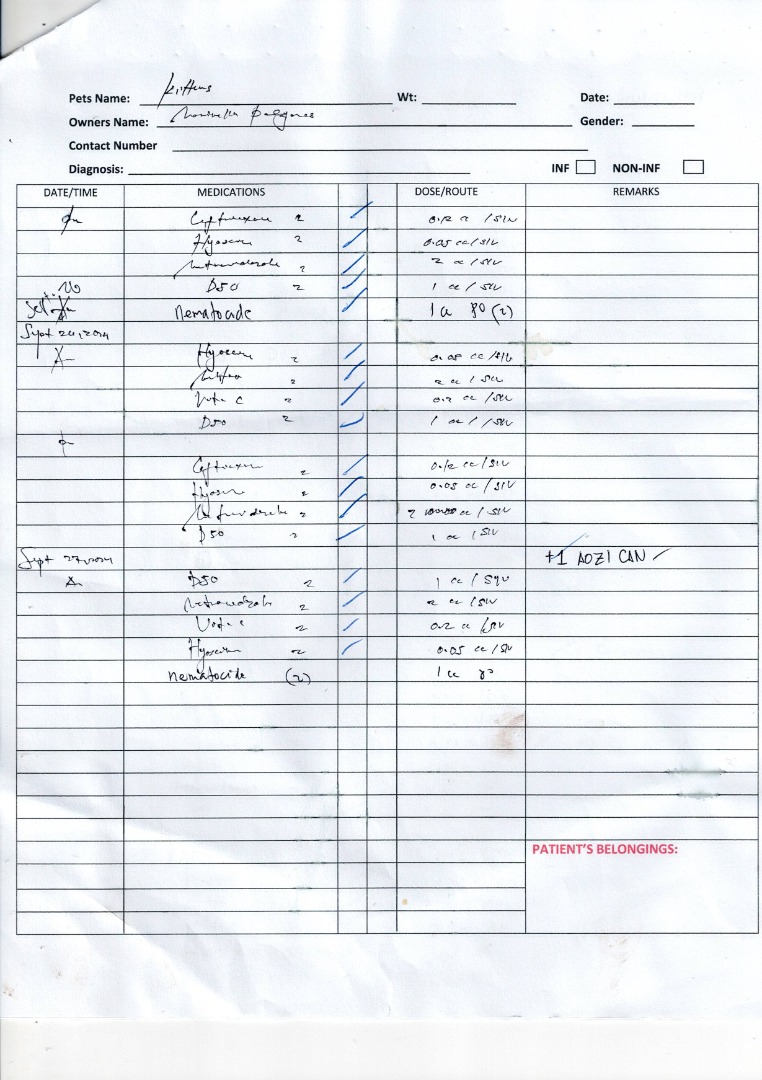 Pets Name: Kittens Wt: Date:
Owners Name: Gender:
Contact Number
Diagnosis: INF NON-INF
DATE/TIME MEDICATIONS DOSE/ROUTE REMARKS
2 0.12 cc / SIV
Hyoscin 2 0.05 cc / SIV
2 2 cc / SIV
D50 2 1 cc / SIV
Nematocide 1 cc PO (2)
Sept 26, 2024
Hyoscin 2 0.05 cc / SIV
2 2 cc / SIV
Vit C 2 0.2 cc / SIV
D50 2 1 cc / SIV
2 0.12 cc / SIV
Hyoscin 2 0.05 cc / SIV
2 2 cc / SIV
D50 2 1 cc / SIV
Sept 27, 2024 +1 AOZI CAN
D50 2 1 cc /
2 2 cc / SIV
Vit C 2 0.2 cc / SIV
Hyoscin 2 0.05 cc / SIV
Nematocide (2) 1 cc PO
PATIENT'S BELONGINGS: